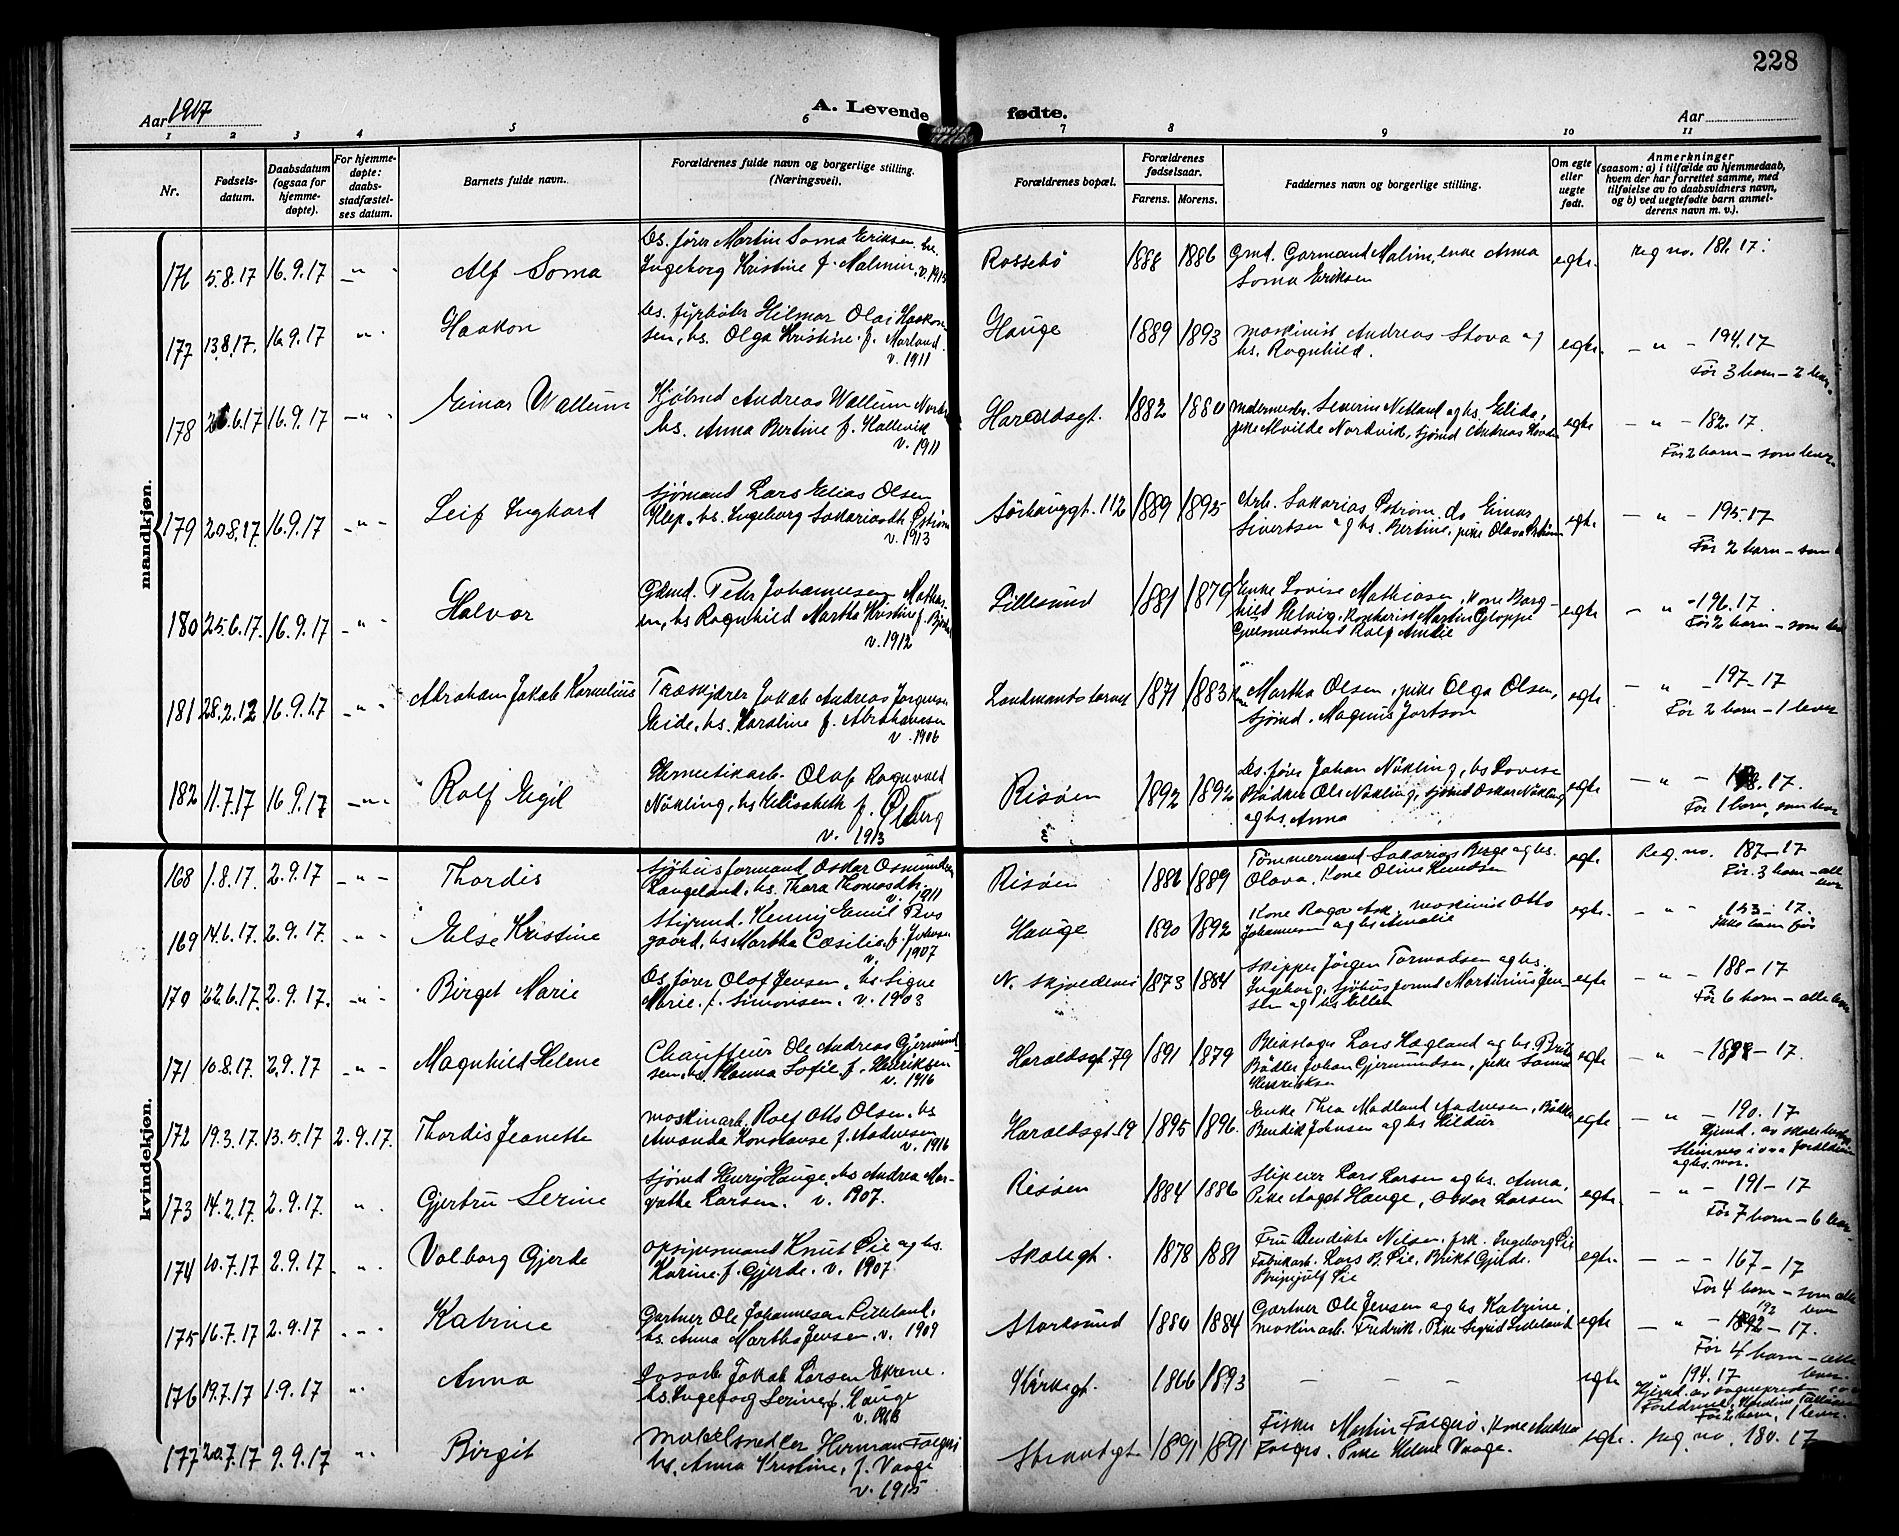 228
Aar 1917
A. Levende fødte.
Aar
1 2 3 4 5 6 7 8 9 10 11
Nr.
Fødsels-
datum.
Daabsdatum
(ogsaa for
hjemme-
døpte).
For hjemme-
døpte:
daabs-
stadfæstel-
ses datum.
Barnets fulde navn.
Forældrenes fulde navn og borgerlige stilling.
(Næringsvei).
Forældrenes bopæl.
Forældrenes
fødselsaar.
Farens. Morens.
Faddernes navn og borgerlige stilling.
Om egte
eller
uegte
født.
Anmerkninger
(saasom: a) i tilfælde av hjemmedaab,
hvem der har forrettet samme, med
tilføielse av to daabsvidners navn,
og b) ved uegtefødte barn anmel-
derens navn m. v.).
mandkjøn.
176 5.8.17 16.9.17 - " - Alf Soma
Ds. fører Martin Soma Eriksen, hu
Ingeborg Kristine f. Malmin, v. 1915
Rossebø 1888 1886
Gmd. Gormand Malmin, enke Anna
Soma Eriksen
egte. Reg no. 181.17.
177 13.8.17. 16.9.17 " Haakon
Ds. fyrbøter Hilmar Olai Haakon
sen, hs. Olga Kristine f. Norland.
v. 1911
Hauge 1889 1893
maskinist Andreas Stova og
hs. Ragnhild.
egte. - " - 194.17
Før 3 barn - 2 lever.
178 26.6.17 16.9.17 - " - Einar Wallum
Kjøbmd Andreas Wallum
hs. Anna Bertine f. Hallevik
v. 1911
Haraldsgt. 1882 1880
Malermester Severin Netland og hs. Elida,
pike Alvilde Nordvik, sjømd Andreas
egte - " - 182.17.
Før 2 barn - som lever
179 20.8.17. 16.9.17 - " - Leif Inghard
Sjømand Lars Elias Olsen
Klep, hs. Ingeborg Sakariasdt. Østrøm
v. 1913
Sörhauggt. 112 1889 1895
Arb. Sakarias Østrøm, do Einar
Sivertsen og hs. Bertine, pike Olava Østrøm
egte. - " - 195.17
Før 2 barn - som
180 25.6.17. 16.9.17 - " - Halvor
Peter Johannesen Mathia-
sen, hs Ragnhild Martha Kristine f.
v. 1912
Lillesund 1881 1879
Enke Lovise Mathiasen, kone Borg-
hild Helvig, Kontorist Martin Gloppe
Gullsmedsvend Rolf Amlie
egte - " - 196.17.
Før 2 barn - som lever
181 28.2.12 16.9.17 - " - Abraham Jakob Kornelius
Træskjærer Jakob Andreas Jørgensen
Eide, hs. Karoline f. Abrahamsen
v. 1906
1871 1883
Martha Olsen, pike Olga Olsen,
sjømd. Magnus
egte. - " - 197-17
Før 2 barn - 1 lever
182 11.7.17 16.9.17 - " - Rolf Eigil
Hermetikarb. Olaf Ragnvald
Nökling, hs Elisabeth f. Østberg
v. 1913
Risøen 1892 1892
Ds. fører Johan Nökling, hs Lovise
Bödker Ole Nökling, sjømd Oskar Nökling
og hs. Anna
egte - " - 198.17.
Før 1 barn, som lever
kvindekjøn.
168 1.8.17. 2.9.17 - " - Thordis
Sjøhusformand Oskar Osmundsen
Haugeland, hs. Thora Thomasdt.
v. 1911
Risøen 1886 1889
Tømmermand Sakarias Berge og hs.
Olava, Kone Oline Knudsen
egte. Reg. no. 187-17
Før 3 barn - alle
lever
169 14.6.17. 2.9.17. - " - Else Kristine
Henny Emil
gaard, hs Martha Cæsilie f.
v. 1907
Hauge 1890 1892
Kone Ragna Ask, maskinist Otto
Johannesen og hs Amalie
egte. - " - 153-17.
Ikke barn før
170 22.6.17. 2.9.17. - " - Birget Marie
Ds. fører Olaf Jensen, hs Signe
Marie f. Simonsen. v. 1903
N. Skjoldevei 1873 1884
Skipper Jörgen Tormodsen og hs.
Ingeborg, sjøhusformd Martinius Jen-
sen og hs Ellen
egte - " - 188-17
Før 6 barn - alle lever
171 10.8.17. 2.9.17 - " - Magnhild Helene
Chauffeur Ole Andreas Gjermund-
sen, hs. Hanna Sofie f. Henriksen
v. 1916
Haraldsgt. 79 1891 1879
Blikslager Lars Hagland og hs. Brita
Bödker Johan Gjermundsen, pike
Henriksen
egte - " - 189-17.
172 19.3.17. 13.5.17 2.9.17. Thordis Jeanette
Maskinarb. Rolf Otto Olsen, hs
Amanda Konstanse f. Aadnesen
v. 1916
Haraldsgt. 19 1895 1896.
Enke Thea Madland Aadnesen, Bödker
Bendik Johnsen og hs Hildur
egte - " - 190.17
173 14.2.17. 2.9.17. " Gjertru Serine
Sjømd Henry Hauge, hs Andrea Mar-
grethe Larsen. v. 1907.
Risøen 1884 1886
Slipeier Lars Larsen og hs. Anna,
Pike Aagot Hauge, Oskar Larsen
egte. - " - 191-17
Før 7 barn - 6 lever
174 10.7.17 2.9.17. - " . Valborg Gjerde
Opsynsmand Knut Lie og hs.
Karine f. Gjerde. v. 1907.
Skolegt. 1878 1881
Fru Bendikte Nilsen, frk. Ingeborg Lie
Fabrikarb. Lars B. Lie, Brikt Gjerde.
Brynjulf Lie
egte. - - 167-17
Før 4 barn - som alle
lever
175 16.7.17 2.9.17. - " - Katrine
Gartner Ole Johannesen Lilleland,
hs. Anna Martha Jensen v. 1909
Storesund 1880 1884
Gartner Ole Jensen og hs Katrine,
maskinarb. Fredrik, Pike Sigrid Lilleland
egte - " - 192-17.
Før 4 barn - alle
lever.
176 19.7.17 1.9.17 " Anna
Jakob Larsen Ekrene.
hs. Ingeborg Serine f. Hauge
v. 1913
Kirkegt. 1866 1893 - - -
egte " 194.17
Hjemd. av sogneprest
Før 2 barn, 1 lever.
177 20.7.17 9.9.17 " Birgit
Herman
hs. Anna Kristine, f. Vaage
v. 1915
Strandgt 1891 1891
Fisker Martin Kone Andrea
Pike Helene Vaage.
egte. Reg. no. 180.17